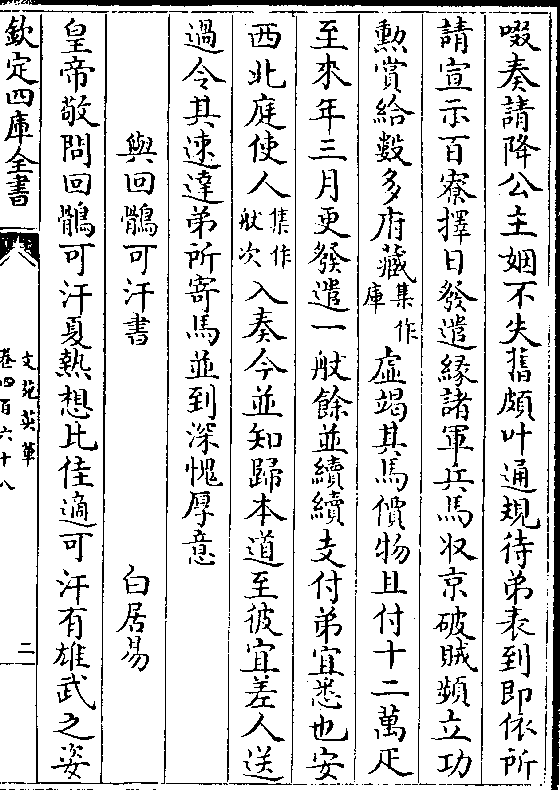 啜奏請降公主姻不失舊頗叶通規待弟表到即依所
請宣示百寮擇日發遣緣諸軍兵馬收京破賊頻立功
勲賞給數多府藏集作庫虛竭其馬價物且付十二萬疋
至來年三月更發遣一般餘並續續支付弟宜悉也安
西北庭使人集作般次入奏今並知歸本道至彼宜差人送
過令其速達弟所寄馬並到深愧厚意
與回鶻可汗書　白居易
皇帝敬問回鶻可汗夏熱想比佳適可汗有雄武之姿
欽定四庫全書
文苑英華
卷四百六十八
二